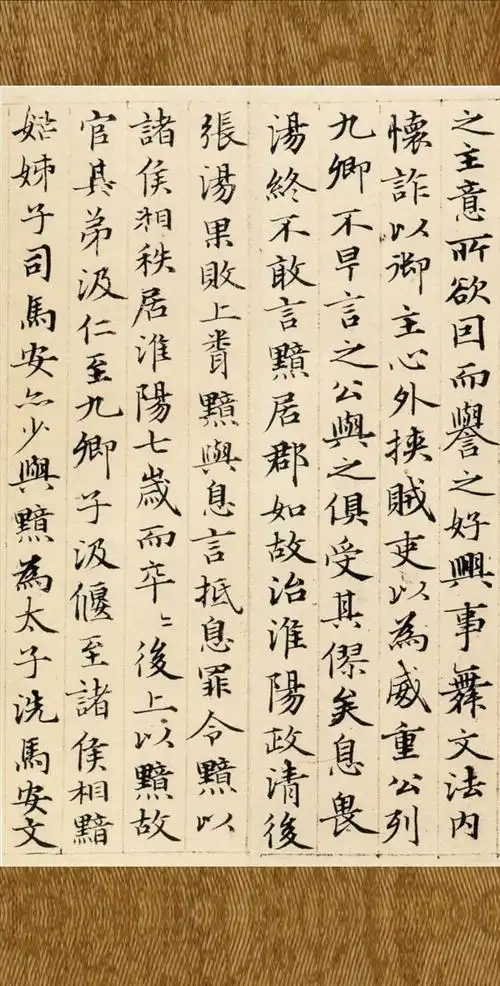 之主意所欲因而譽之好興事舞文法内
懷詐以御主心外挾賊吏以為威重公列
九卿不早言之公與之俱受其僇矣息畏
湯終不敢言黯居郡如故治淮陽政清後
張湯果敗上聞黯與息言抵息罪令黯以
諸侯相秩居淮陽七歲而卒卒後上以黯故
官其弟汲仁至九卿子汲偃至諸侯相黯
姑姊子司馬安亦少與黯為太子洗馬安文